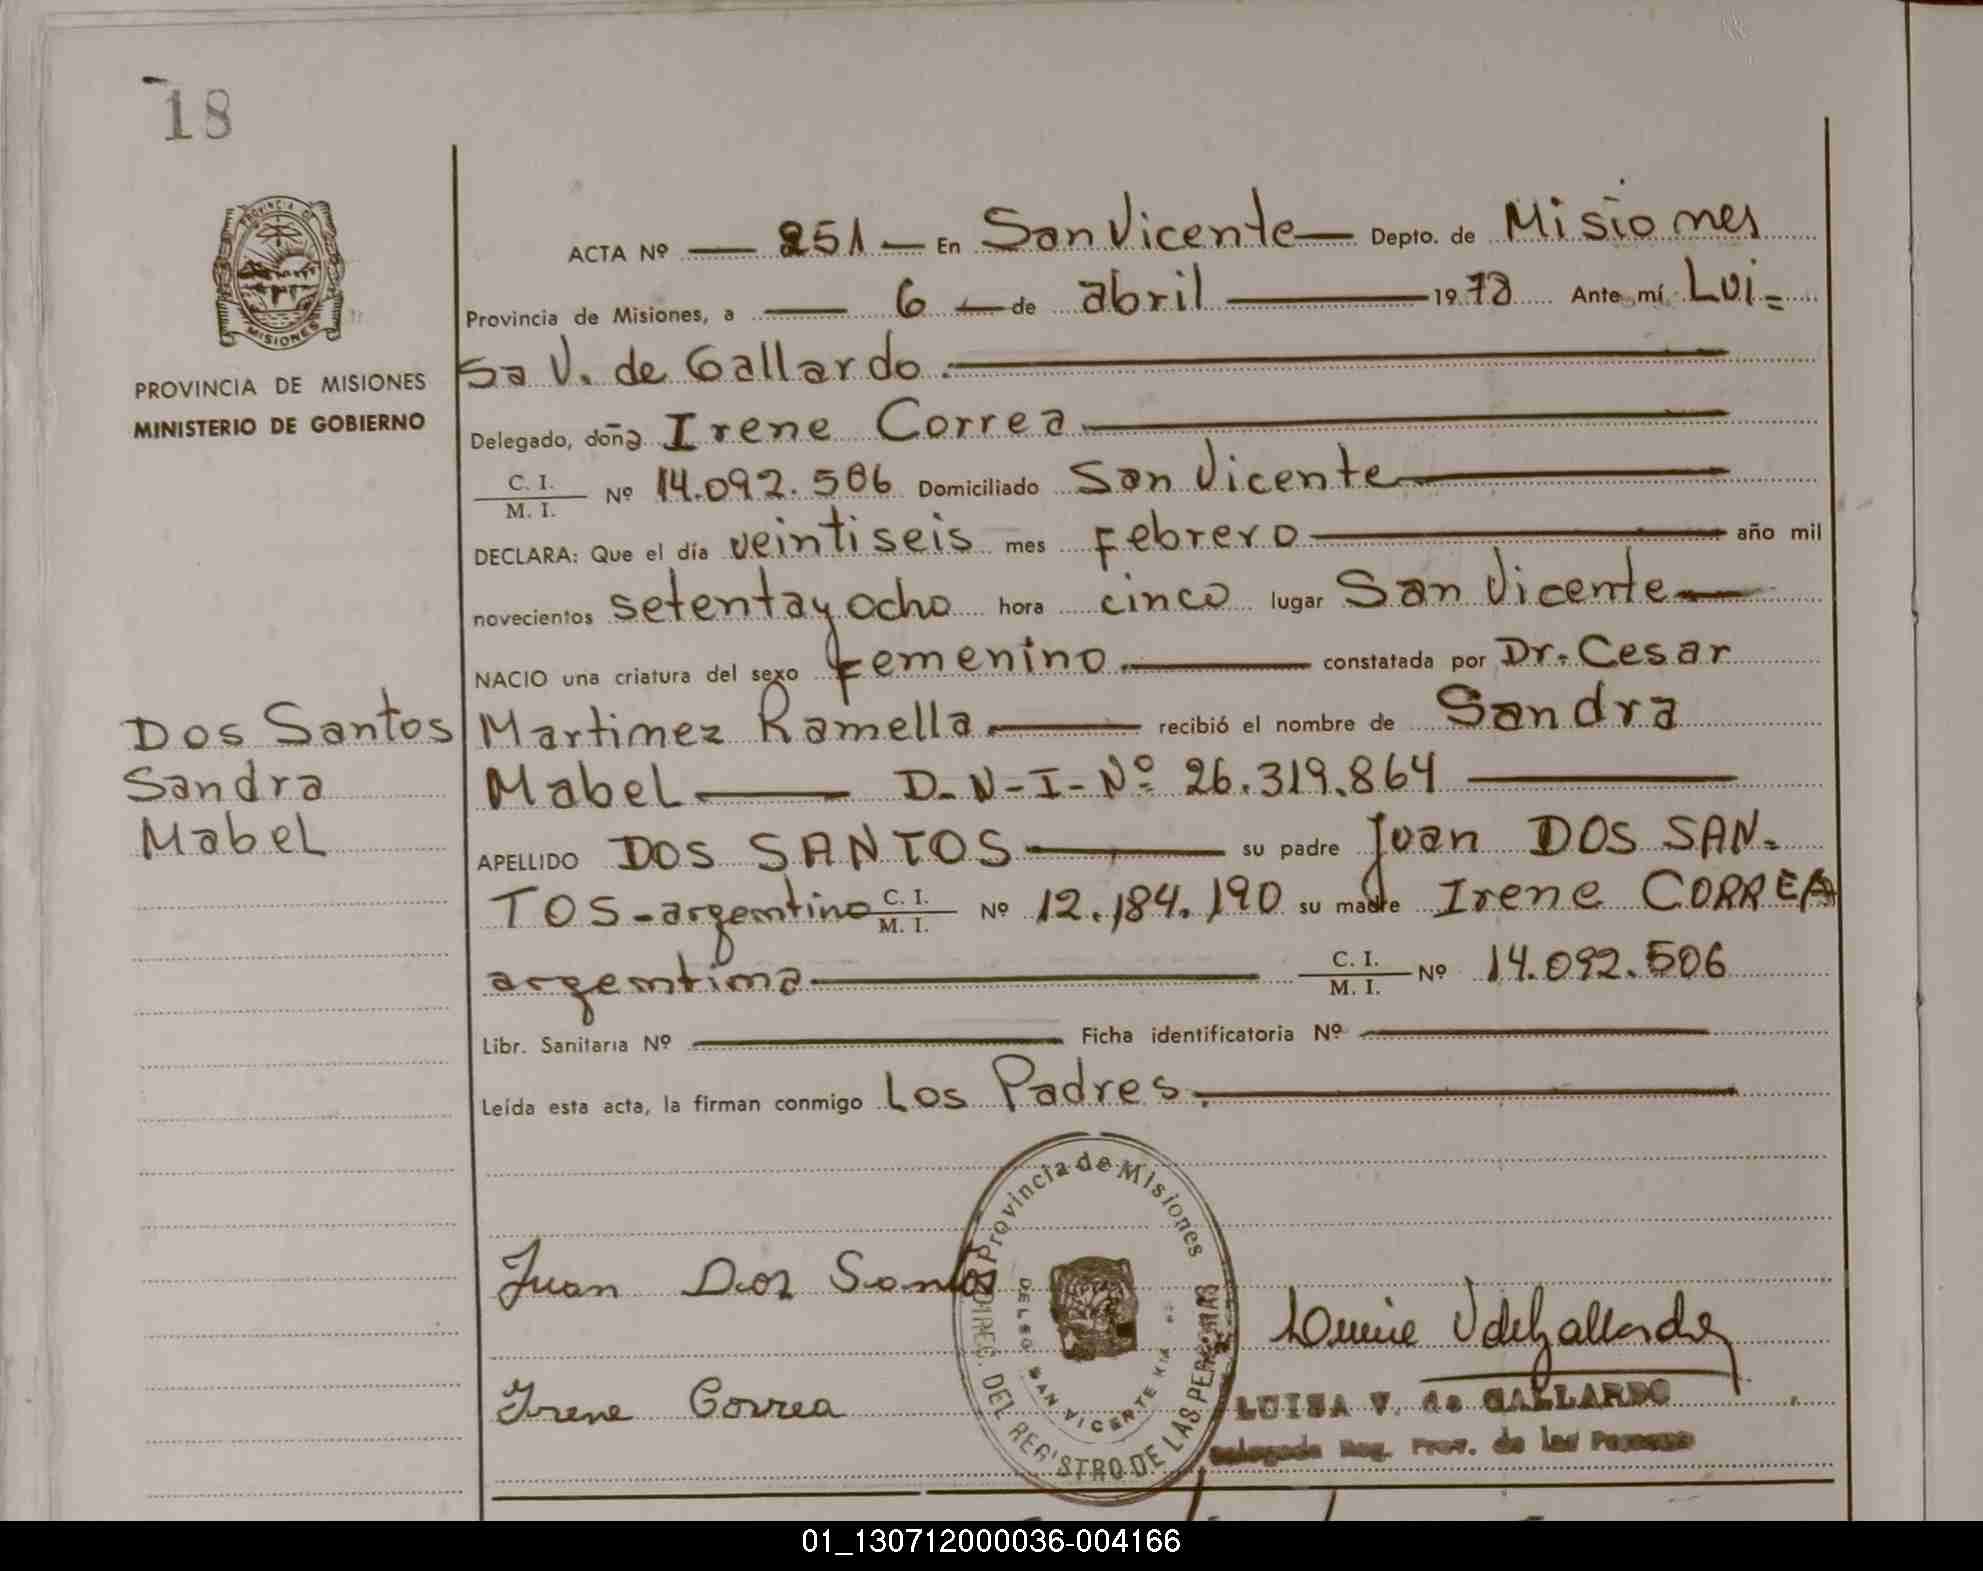 18
PROVINCIA DE MISIONES
PROVINCIA DE MISIONES
MINISTERIO DE GOBIERNO
ACTA Nº 251 En San Vicente Depto. de Misiones
Provincia de Misiones, a 6 de abril 1978 Ante mí Lui=
sa V. de Gallardo.
Delegado, doña Irene Correa
C. I.
M. I. Nº 14.092.506 Domiciliado San Vicente
DECLARA: Que el día veintiseis mes Febrero año mil
novecientos setenta y ocho hora cinco lugar San Vicente
NACIO una criatura del sexo Femenino constatada por Dr. Cesar
Martinez Ramella recibió el nombre de Sandra
Mabel D-N-I-Nº 26.319.864
APELLIDO DOS SANTOS su padre Juan DOS SAN=
TOS-argentino C. I. M. I. Nº 12.184.190 su madre Irene CORREA
argentina C. I. M. I. Nº 14.092.506
Libr. Sanitaria Nº Ficha identificatoria Nº
Leída esta acta, la firman conmigo Los Padres.
Dos Santos
Sandra
Mabel
Juan Dos Santos
Irene Correa
Provincia de Misiones
DIREC. DEL REGISTRO DE LAS PERSONAS
DELEG. SAN VICENTE
LUISA V. de GALLARDO
Delegada Reg. Prov. de las Personas
01_130712000036-004166